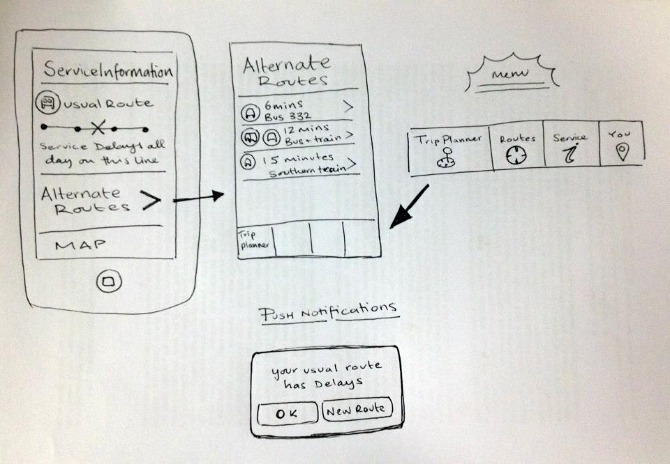 Service Information
usual Route
Service Delays all
day on this line
Alternate
Routes
MAP
Alternate
Routes
6 mins
Bus 332
12 mins
Bus + train
15 minutes
Southern train
Trip
planner
menu
Trip Planner
Routes
Service
i
You
Push Notifications
your usual route
has Delays
OK
New Route